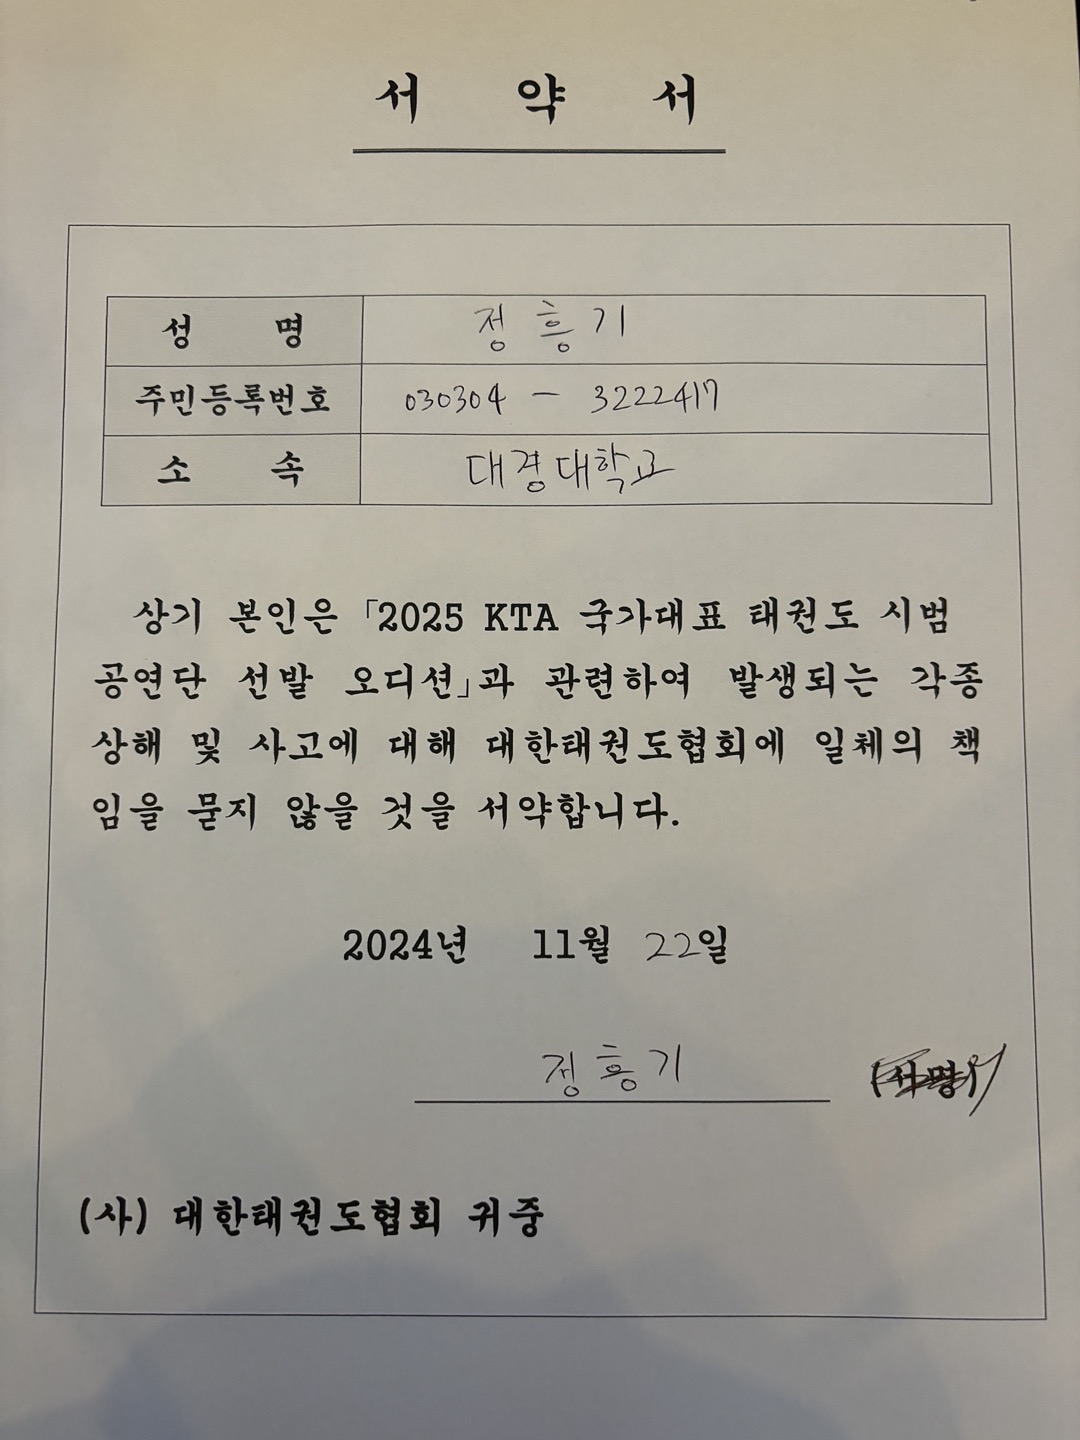 서 약 서
성 명 정흥기
주민등록번호 030304 - 3222417
소 속 대경대학교
상기 본인은 「2025 KTA 국가대표 태권도 시범
공연단 선발 오디션」과 관련하여 발생되는 각종
상해 및 사고에 대해 대한태권도협회에 일체의 책
임을 묻지 않을 것을 서약합니다.
2024년 11월 22일
정흥기 (서명)
(사) 대한태권도협회 귀중